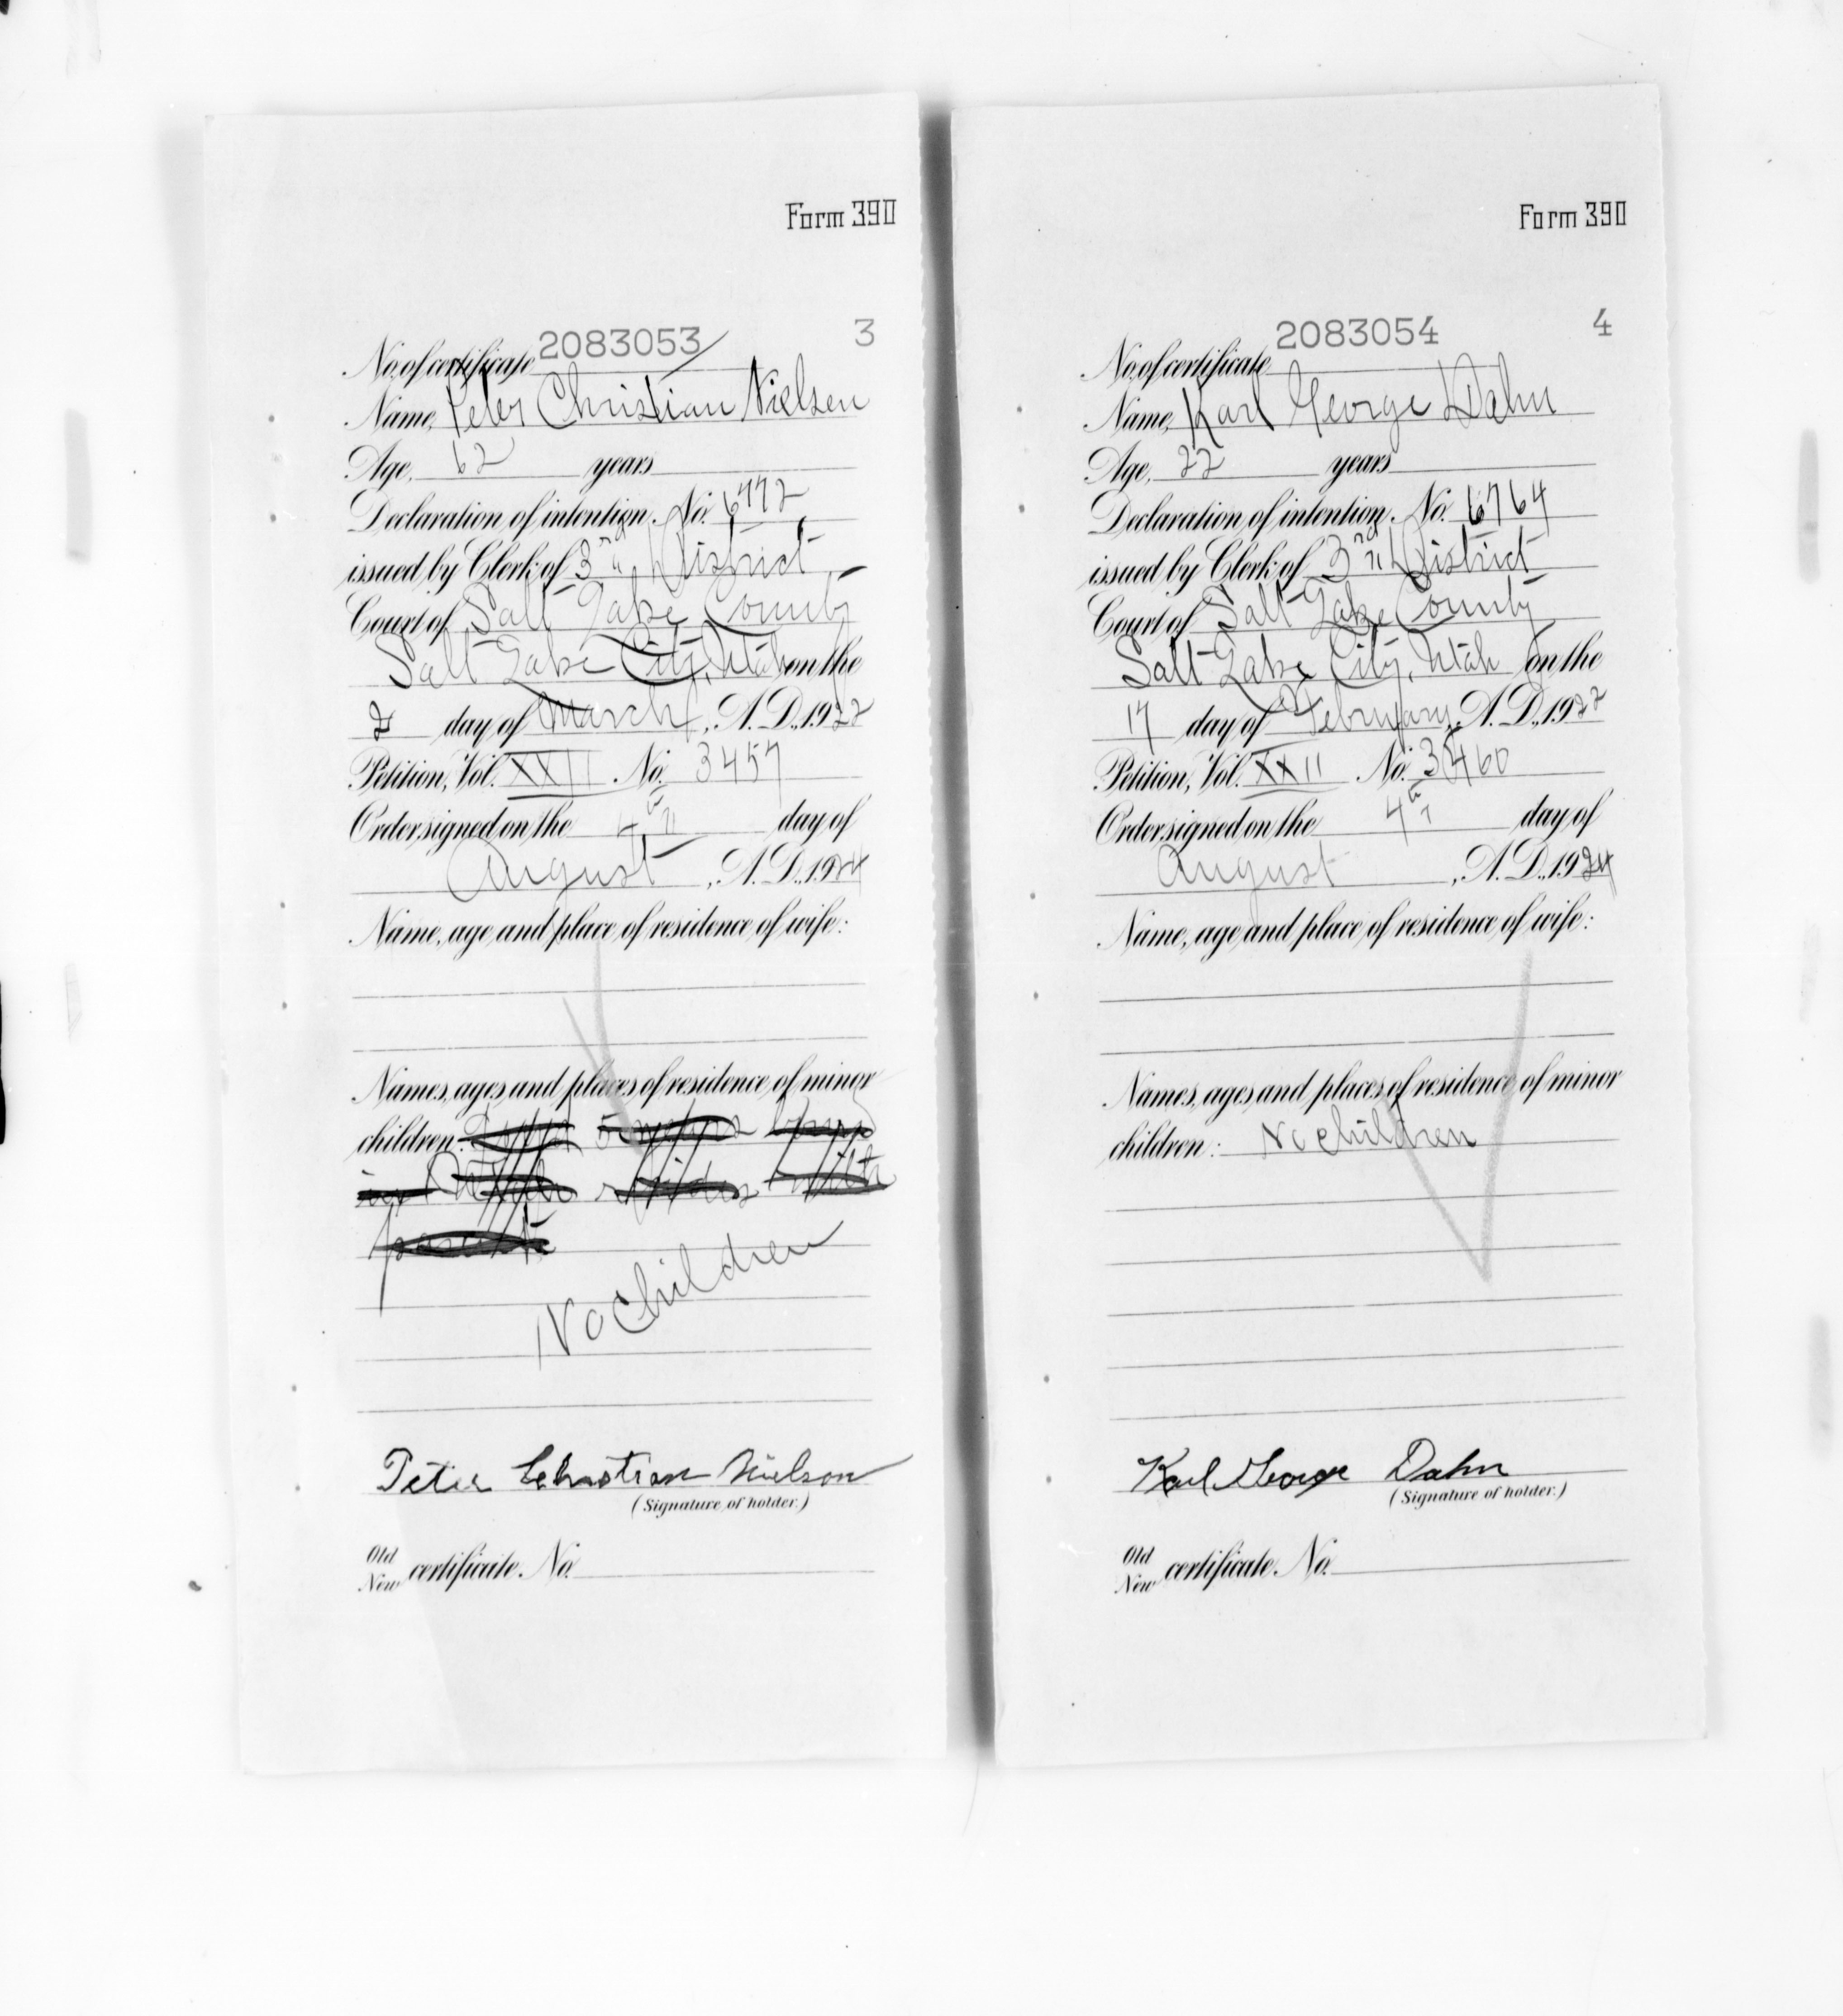 Form 390
3
No. of certificate 2083053
Name, Peter Christian Nielsen
Age, 62 years
Declaration of intention, No. 6772
issued by Clerk of 3rd District
Court of Salt Lake County
Salt Lake City, Utah on the
2 day of March, A. D., 1922
Petition, Vol. XXII No. 3457
Order signed on the 4th day of
August, A. D., 1924
Name, age and place of residence of wife:
Names, ages and places of residence of minor
children:
with
No children
Peter Christian Nielson
(Signature of holder.)
Old
New certificate. No.
Form 390
4
No. of certificate 2083054
Name, Karl George Dahn
Age, 22 years
Declaration of intention, No. 6764
issued by Clerk of 3rd District
Court of Salt Lake County
Salt Lake City, Utah on the
17 day of February, A. D., 1922
Petition, Vol. XXII No. 3460
Order signed on the 4th day of
August, A. D., 1924
Name, age and place of residence of wife:
Names, ages and places of residence of minor
children: No children
Karl George Dahn
(Signature of holder.)
Old
New certificate. No.